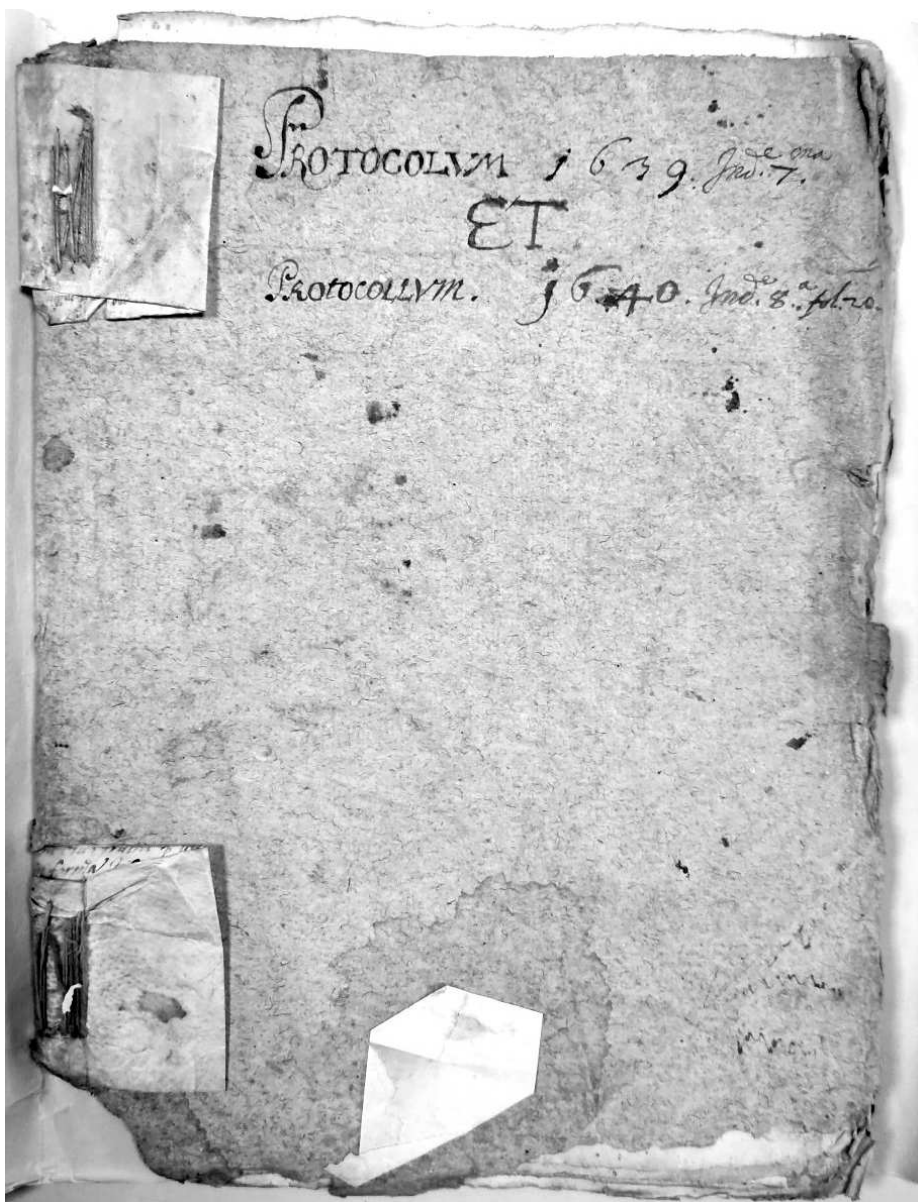 PROTOCOLVM 1639. Ind.e 7.ma
ET
PROTOCOLLVM. 1640. Ind.e 8.a fol. 20.